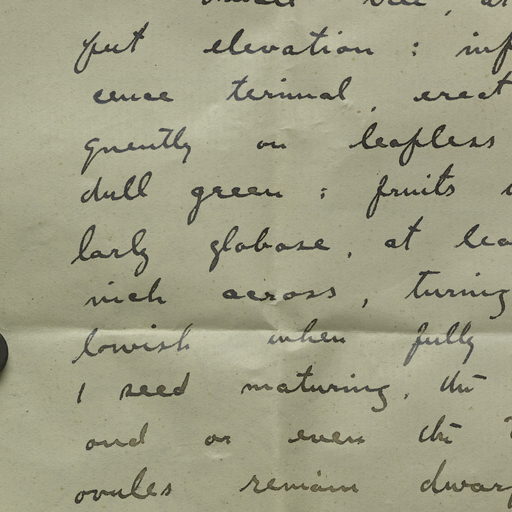 put elevation : inf
cence terminal, erect
quently on leafless
dull green ; fruits
larly globose, at lea
inch across, turning
lowish when fully
1 seed maturing, the
ond or even the
ovules remain dwar